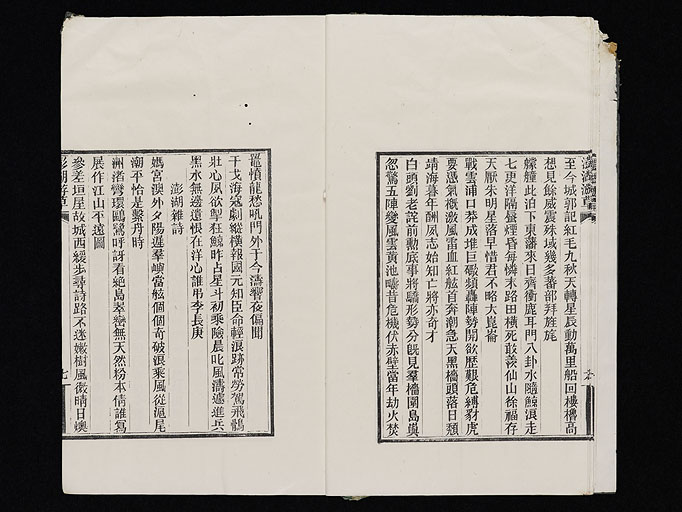 至今城郭記紅毛九秋天轉星辰動萬里船回樓櫓高
想見餘威震殊域幾多蕃部拜旌旄
艨艟此泊下東藩來日齊衝鹿耳門八卦水隨鯨浪走
七更洋隔蜃煙昏每憐末路田橫死敢羨仙山徐福存
天厭朱明星落早惜君不略大崑崙
戰雲浦口莽成堆巨礮頻轟陣勢開欲歷艱危縛豺虎
要憑氣概激風雷血紅舷首奔潮急天黑檣頭落日頹
靖海暮年酬夙志始知亡將亦奇才
白頭劉老詫前勳底事將驕形勢分既見羣檣圍島嶼
忽驚五陣變風雲黃池疇昔危機伏赤壁當年劫火焚
鼉憤龍愁吼門外于今濤響夜偏聞
干戈海寇劇縱橫報國元知臣命輕浪跡常勞駕飛鶻
壯心夙欲掣狂鯨昨占星斗初乘險晨叱風濤遽進兵
黑水無邊遺恨在洋心誰弔李長庚
澎湖雜詩
媽宮澳外夕陽遲羣嶼當舷個個奇破浪乘風從滬尾
潮平恰是繫舟時
洲渚彎環鷗鷺呼訝看絕島翠巒無天然粉本倩誰寫
展作江山平遠圖
參差垣屋故城西緩步尋詩路不迷嫩樹風微晴日燠
七